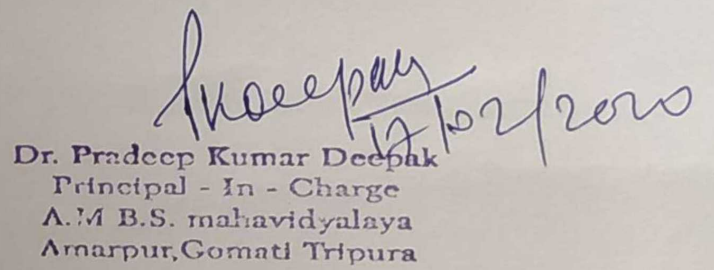 Pkdeepak
17/02/2020
Dr. Pradeep Kumar Deepak
Principal - In - Charge
A.M B.S. mahavidyalaya
Amarpur,Gomati Tripura